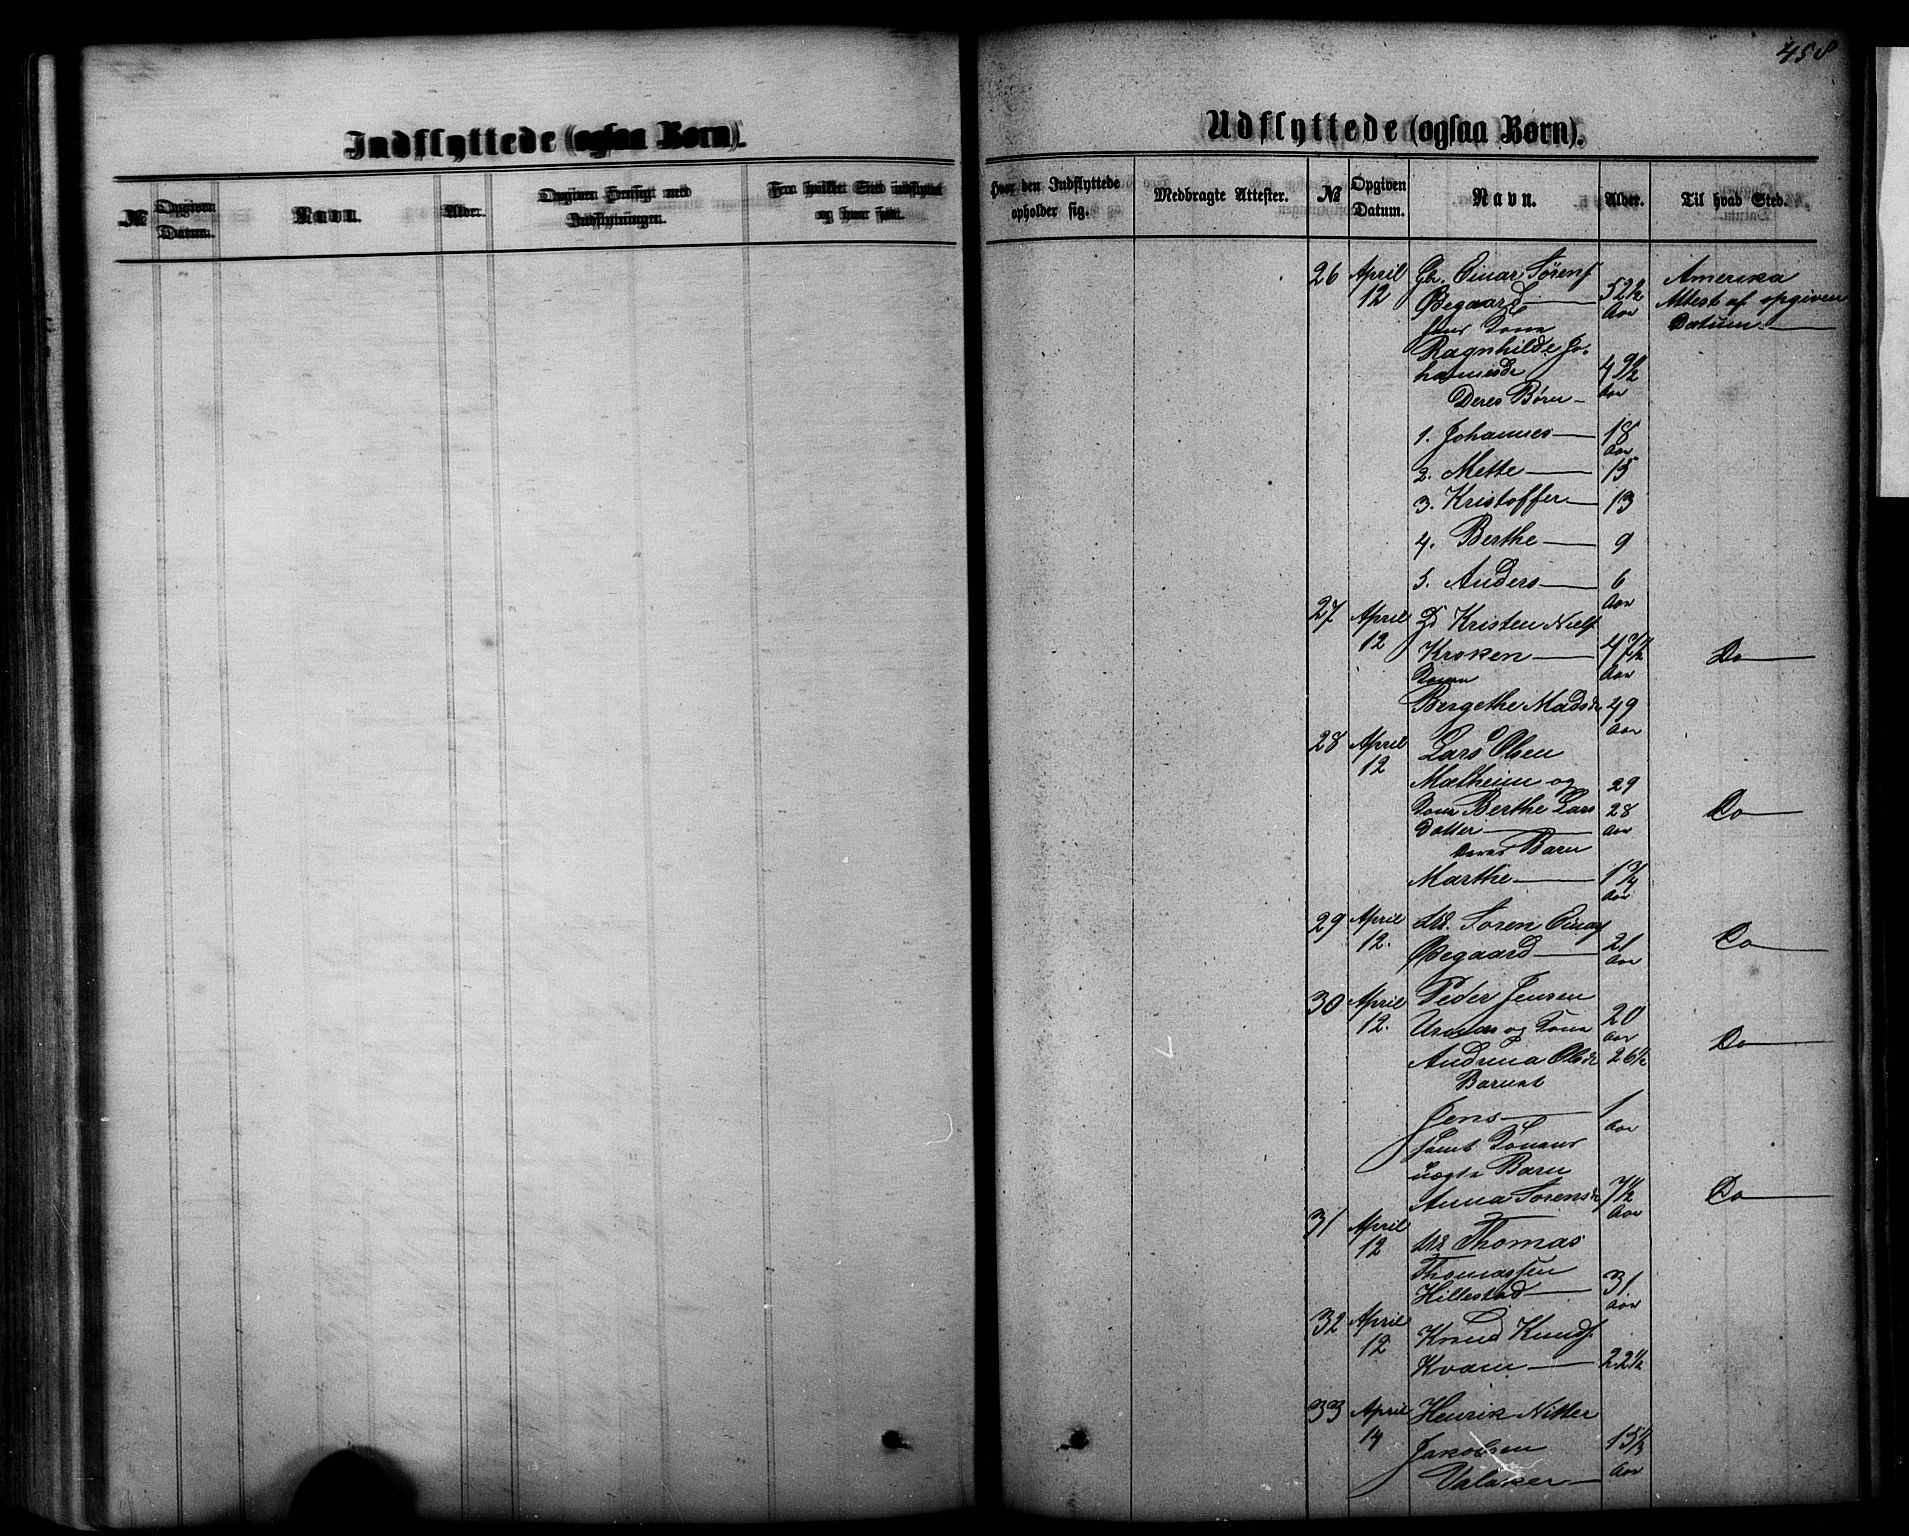 458
Indflyttede (ogsaa Børn).
№
Opgiven Datum.
Navn.
Alder.
Opgiven Hensigt med Indflytningen.
Fra hvilket Sted indflyttet og hvor født.
Udflyttede (ogsaa Børn).
Hvor den Indflyttede opholder sig.
Medbragte Attester.
№
Opgiven Datum.
Navn.
Alder.
Til hvad Sted.
26 April Gbr. Einar Sørens Amerika
12 Øegaard 52½ Attest af opgiven
Aar Datum
Kone
Ragnhilde Jo-
hannesdr 49½
Deres Børn Aar
1. Johannes 18
Aar
2. Mette 15
3. Kristoffer 13
4. Berthe 9
5. Anders 6
Aar
27 April Kristen Niels
12 Kroken 47½ Do
Kone Aar
Bergethe Madsdr 49
Aar
28 April Lars Olsen
12 Molheim og 29
Kone Berthe Lars 28 Do
Datter Aar
deres Barn
Marthe 1¾
Aar
29 April Uk. Soren Einars
12. Øegaard 21 Do
Aar
30 April Peder Jensen
12. Urnæs og Kone 20
Aar
Andrina Olsdr 26½ Do
Barnet
Jens 1
Aar
samt Konens
uægte Barn
Anna Sorensdr 7½ Do
Aar
31 April
12 Uk Thomas
Thomassen
Hillestad 31
Aar
32 April
12 Knud Knuds.
Kvam 22½
33 April Henrik Nitter
14 Jakobsen 15½
Valaker Aar